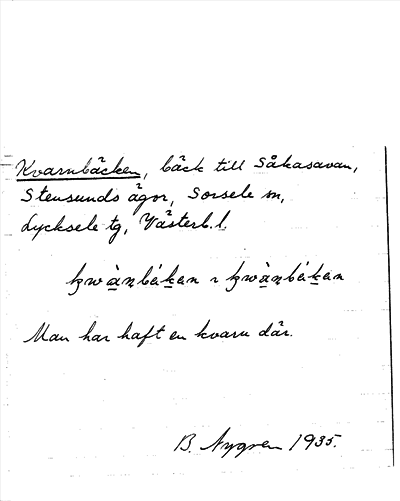 Kvarnbäcken, bäck till Såkasavan,
Stensunds ägor, Sorsele sn,
Lycksele tg, Västerb. l.
Man har haft en kvarn där.
B. Nygren 1935.